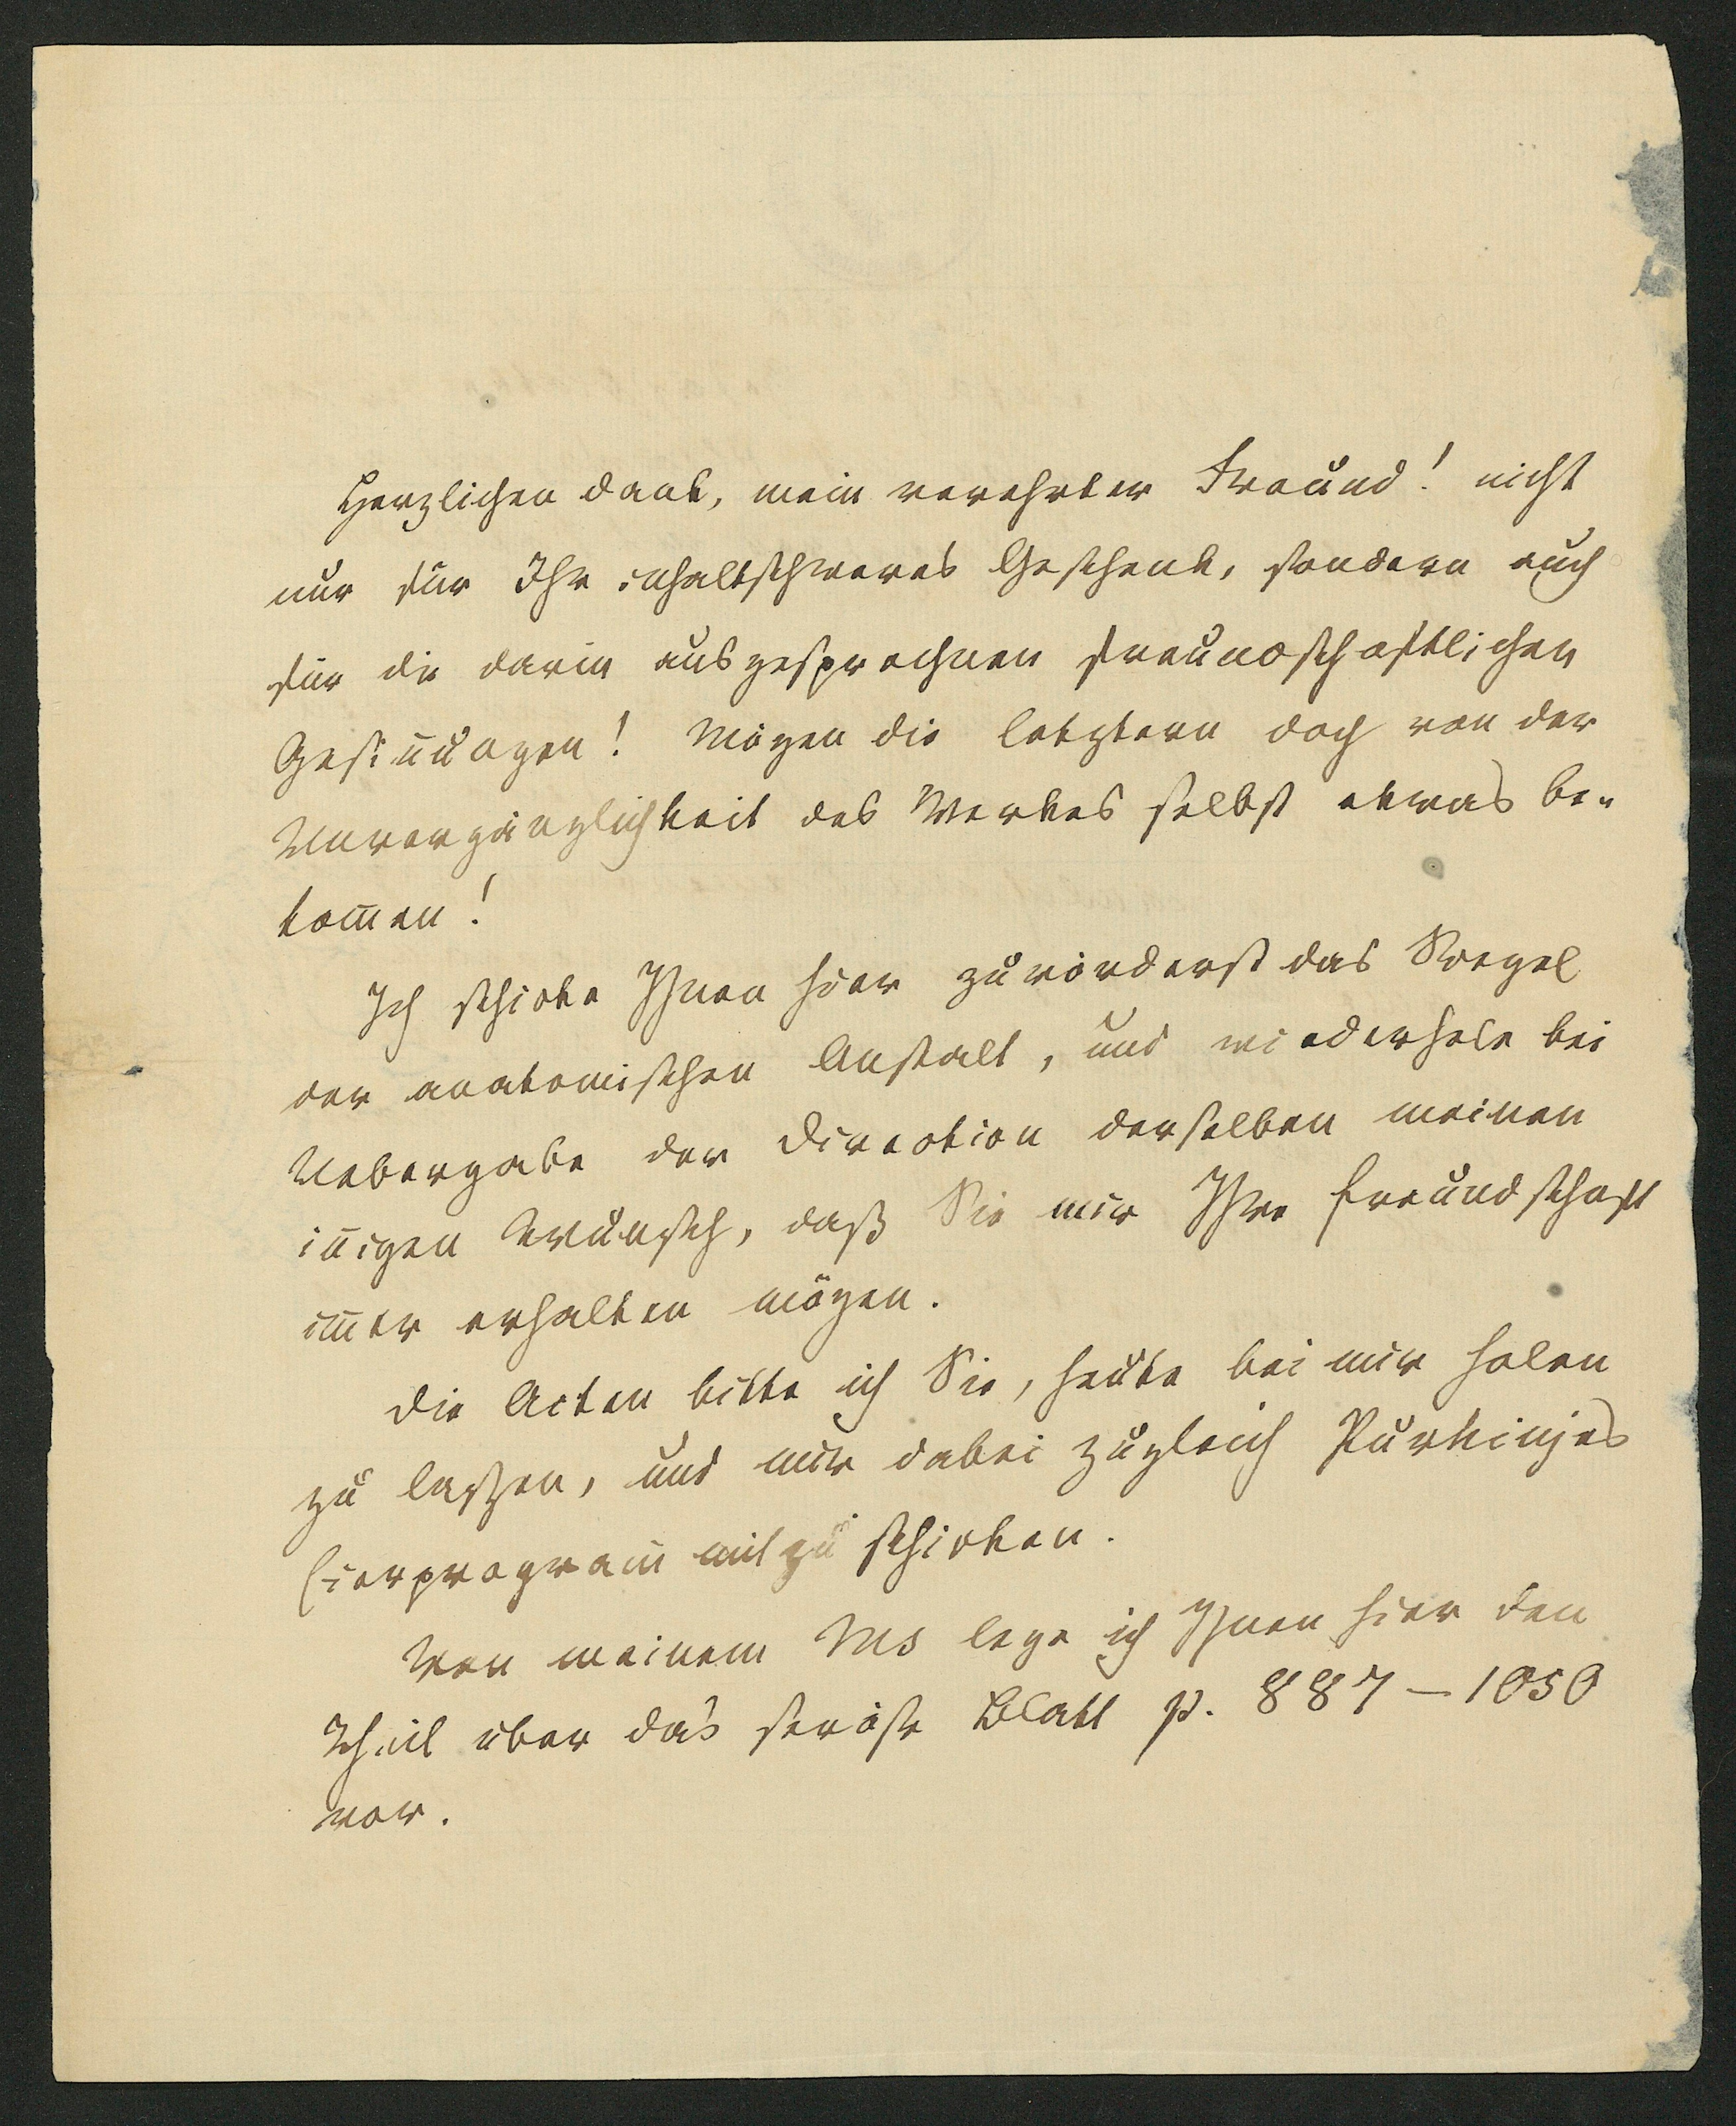 Herzlichen Dank, mein verehrter Freund! nicht
nur für Ihr inhaltschweres Geschenk, sondern auch
für die darin ausgesprochnen freundschaftlichen
Gesin̄ungen! Mögen die letztern doch von der
Unvergänglichkeit des Werkes selbst etwas be-
kom̄en!
Ich schicke Ihnen hier zuvörderst das Siegel
der anatomischen Anstalt, und wiederhole bei
Uebergabe der Direction derselben meinen
in̄igen Wunsch, daß Sie mir Ihre Freundschaft
im̄er erhalten mögen.
Die Acten bitte ich Sie, heute bei mir holen
zu laßen, und mir dabei zugleich Purkinjes
Eierprogram̄ mitzuschicken.
Von meinem Ms lege ich Ihnen hier den
Theil über das seröse Blatt p. 887 – 1050
vor.